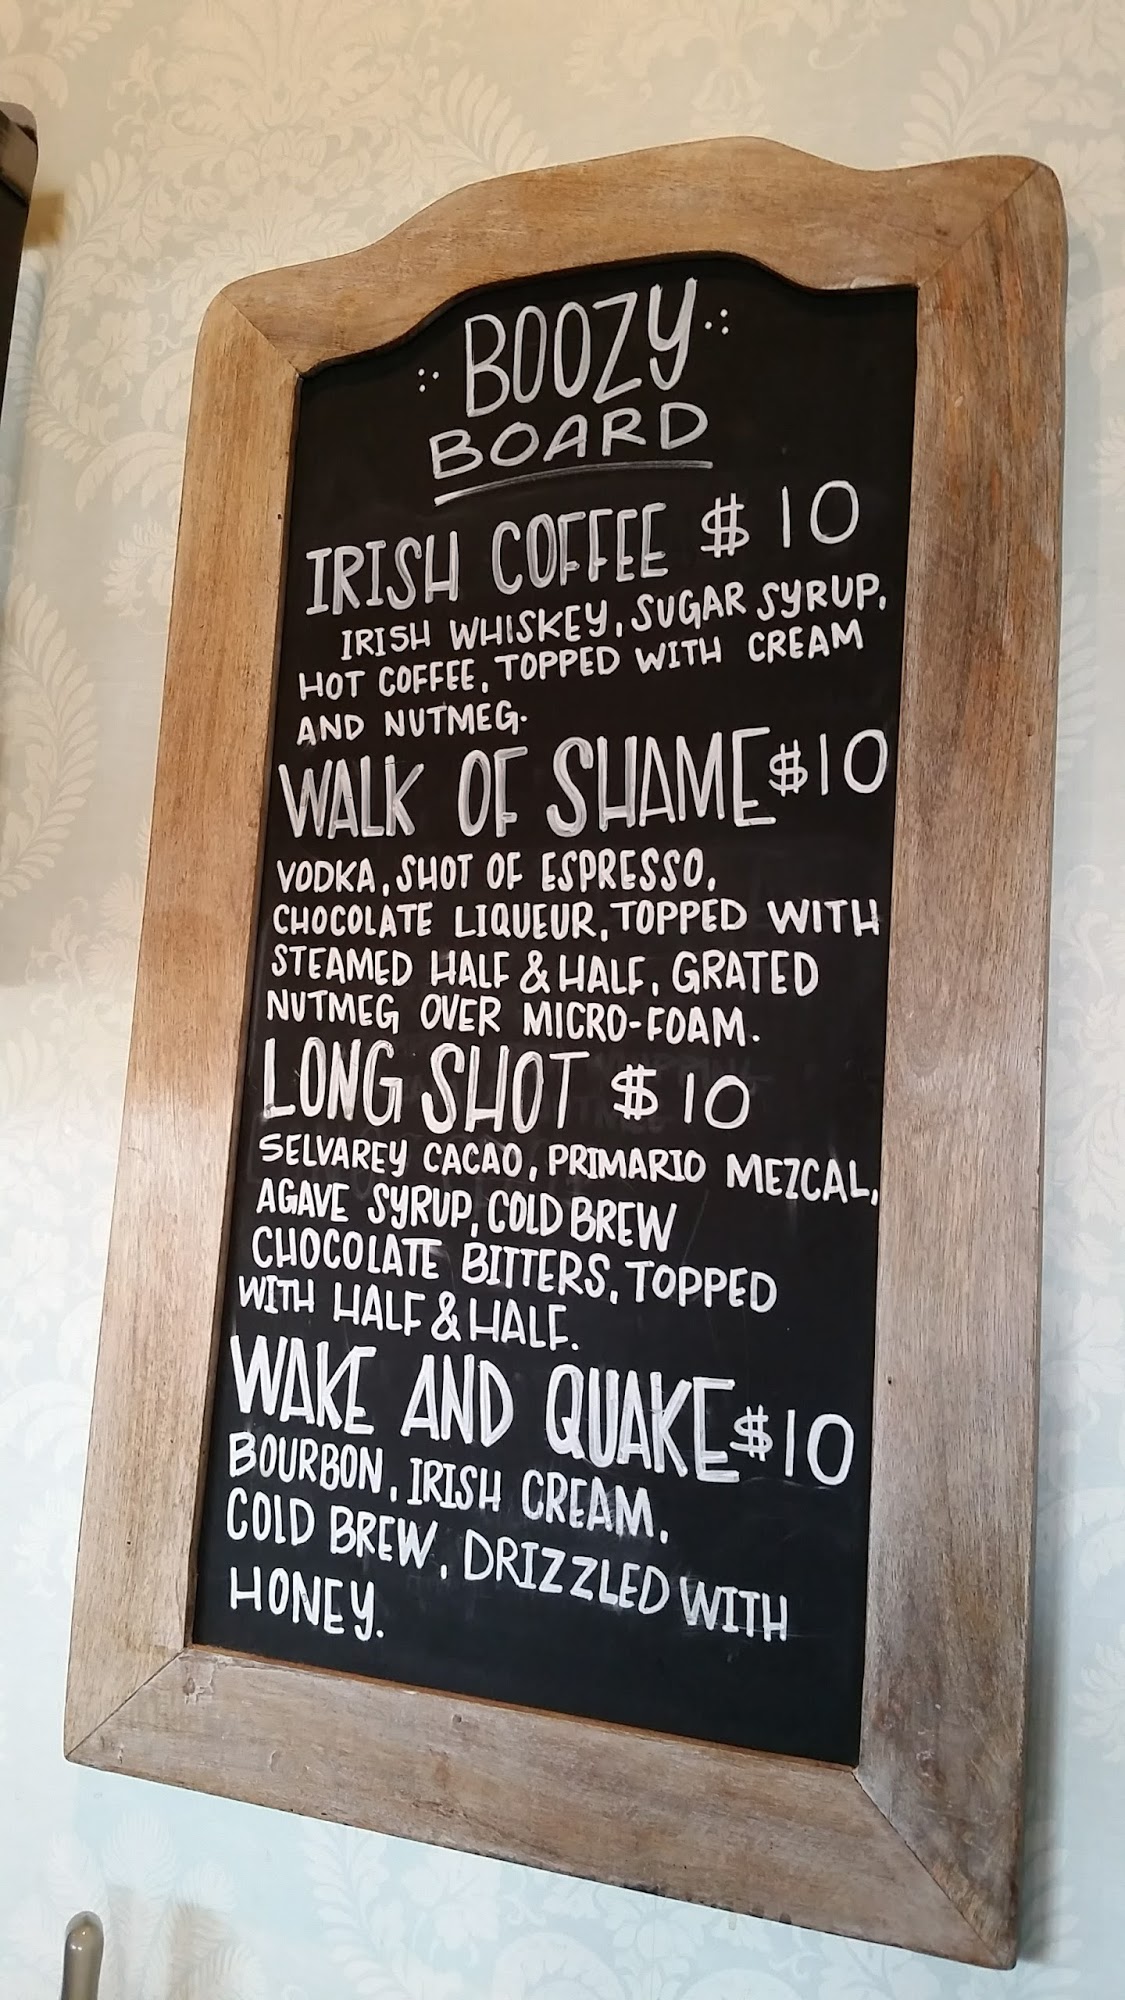 BOOZY
BOARD
IRISH COFFEE $10
IRISH WHISKEY, SUGAR SYRUP,
HOT COFFEE, TOPPED WITH CREAM
AND NUTMEG.
WALK OF SHAME $10
VODKA, SHOT OF ESPRESSO,
CHOCOLATE LIQUEUR, TOPPED WITH
STEAMED HALF & HALF, GRATED
NUTMEG OVER MICRO-FOAM.
LONG SHOT $10
SELVAREY CACAO, PRIMARIO MEZCAL,
AGAVE SYRUP, COLD BREW
CHOCOLATE BITTERS, TOPPED
WITH HALF & HALF.
WAKE AND QUAKE $10
BOURBON, IRISH CREAM,
COLD BREW, DRIZZLED WITH
HONEY.